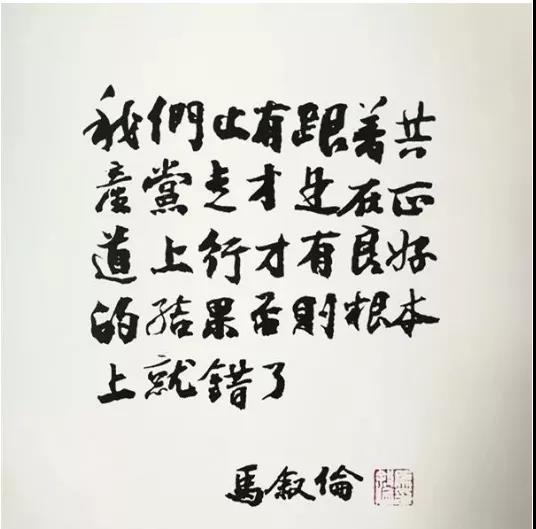 我們止有跟着共
產黨走才是在正
道上行才有良好
的結果否則根本
上就錯了
馬叙倫